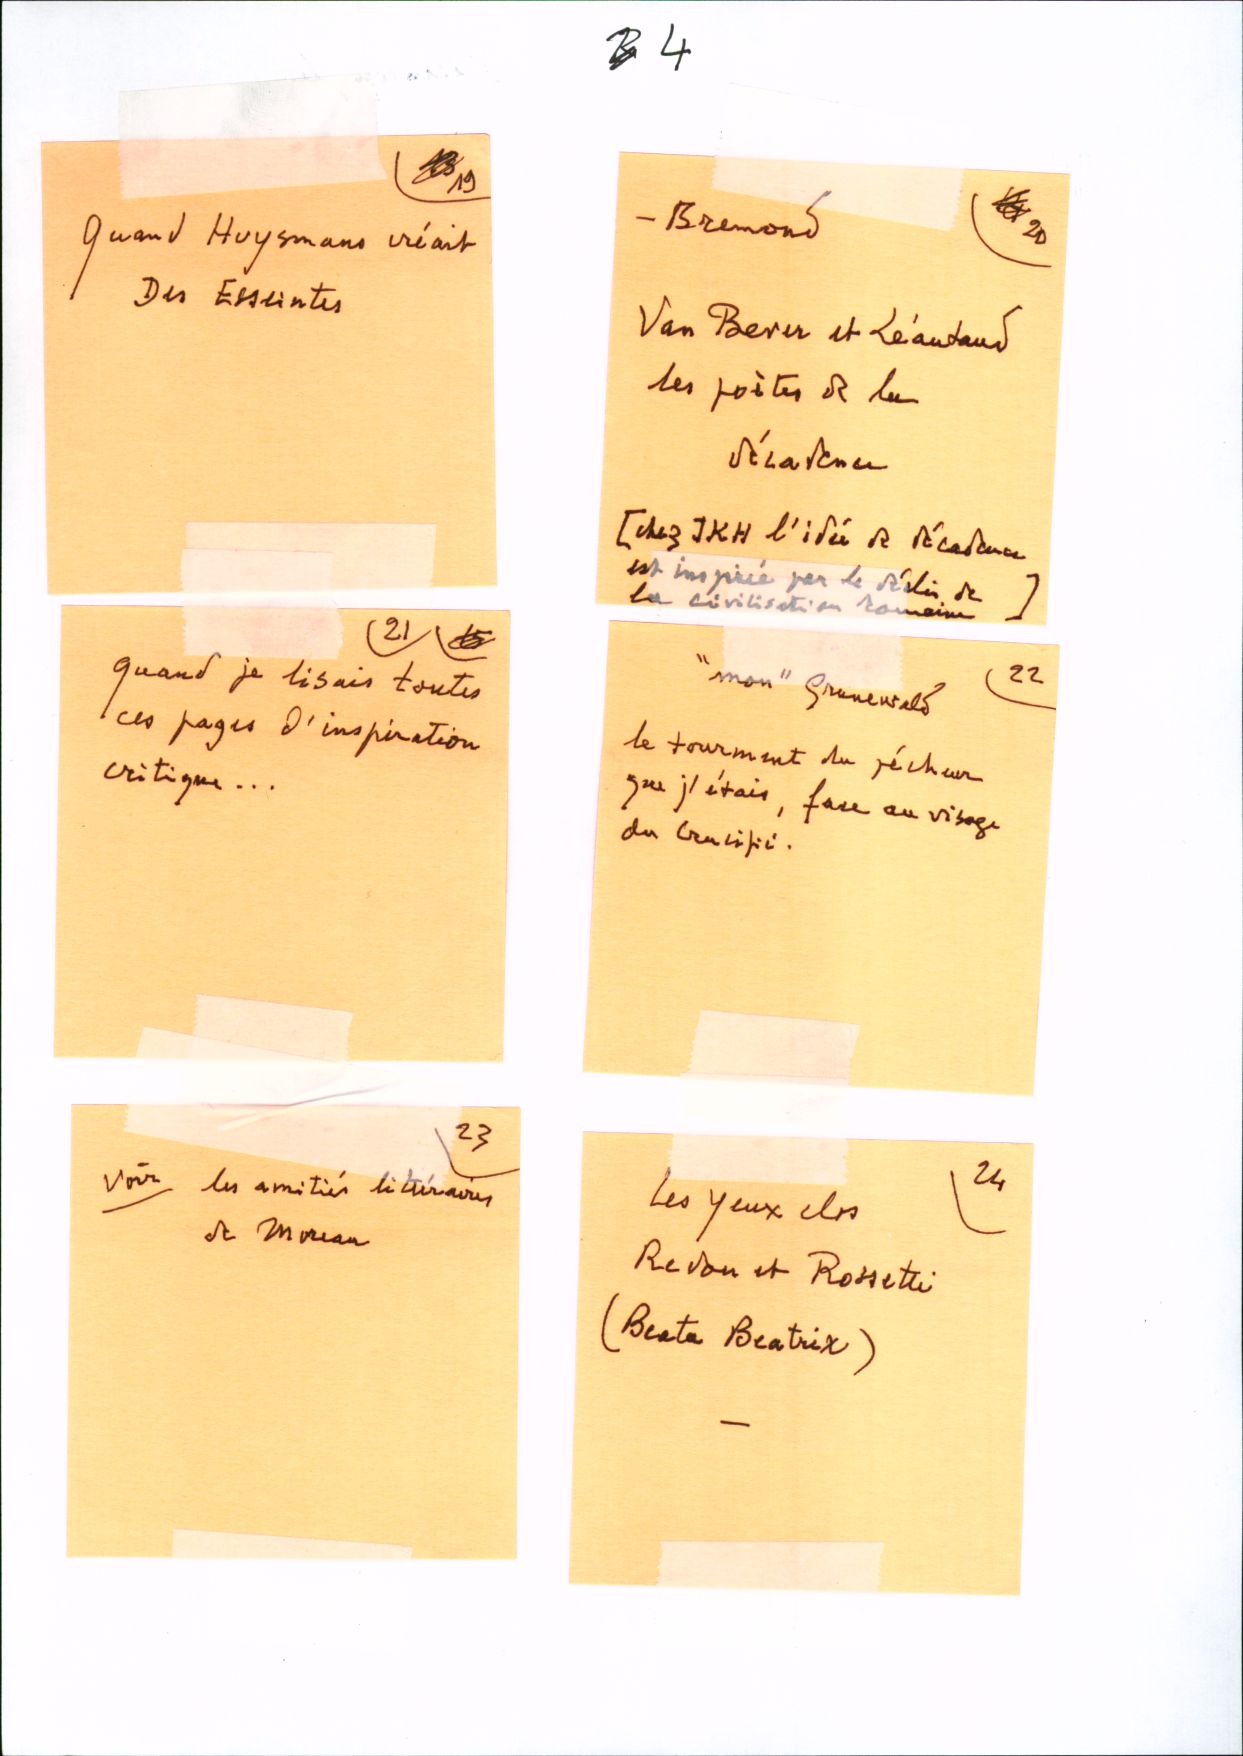 B 4
19
Quand Huysmans créait
Des Esseintes
20
- Bremond
Van Bever et Léautaud
les poètes de la
décadence
[chez JKH l'idée de décadence
est inspirée par le déclin de
la civilisation romaine]
21
quand je lisais toutes
ces pages d'inspiration
critique...
22
"mon" Grunewald
le tourment du pécheur
que j'étais, face au visage
du Crucifié.
23
Voir les amitiés littéraires
de Moreau
24
Les yeux clos
Redon et Rossetti
(Beata Beatrix)
—